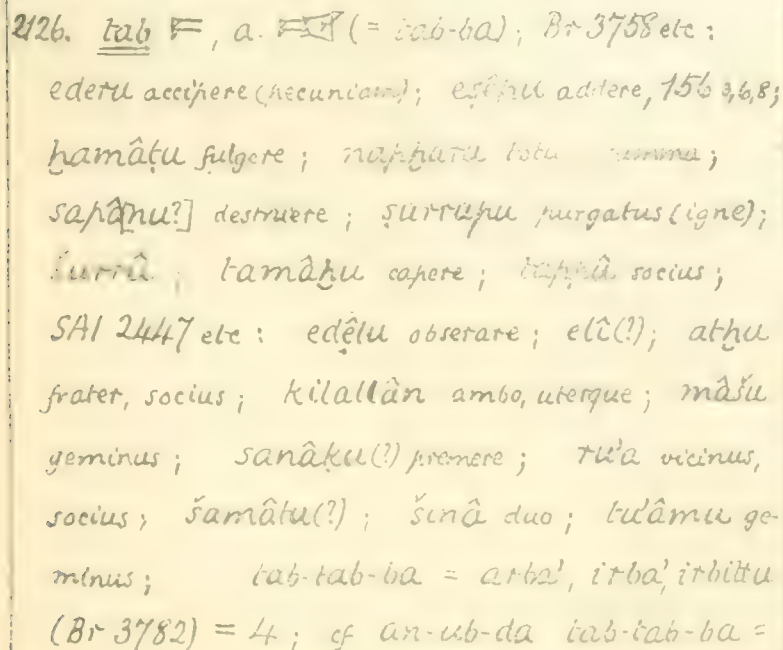 2126. tab 𒋰, a. 𒋰𒁀 (= tab-ba); Br 3758 etc :
ederu accipere (pecuniam); eṣêpu addere, 156 3,6,8;
ḫamâṭu fulgere ; napḫaru summa ;
sapâ[nu?] destruere ; ṣurrupu purgatus (igne);
šurrû ; tamâḫu capere ; tappû socius ;
SAI 2447 etc : edêlu obserare ; elî(?); atḫu
frater, socius ; kilallân ambo, uterque ; mâšu
geminus ; sanâḳu(?) premere ; ru'a vicinus,
socius ; šamâtu(?) ; šinâ duo ; tu'âmu ge-
minus ; tab-tab-ba = arba', irba', irbittu
(Br 3782) = 4 ; cf an-ub-da tab-tab-ba =